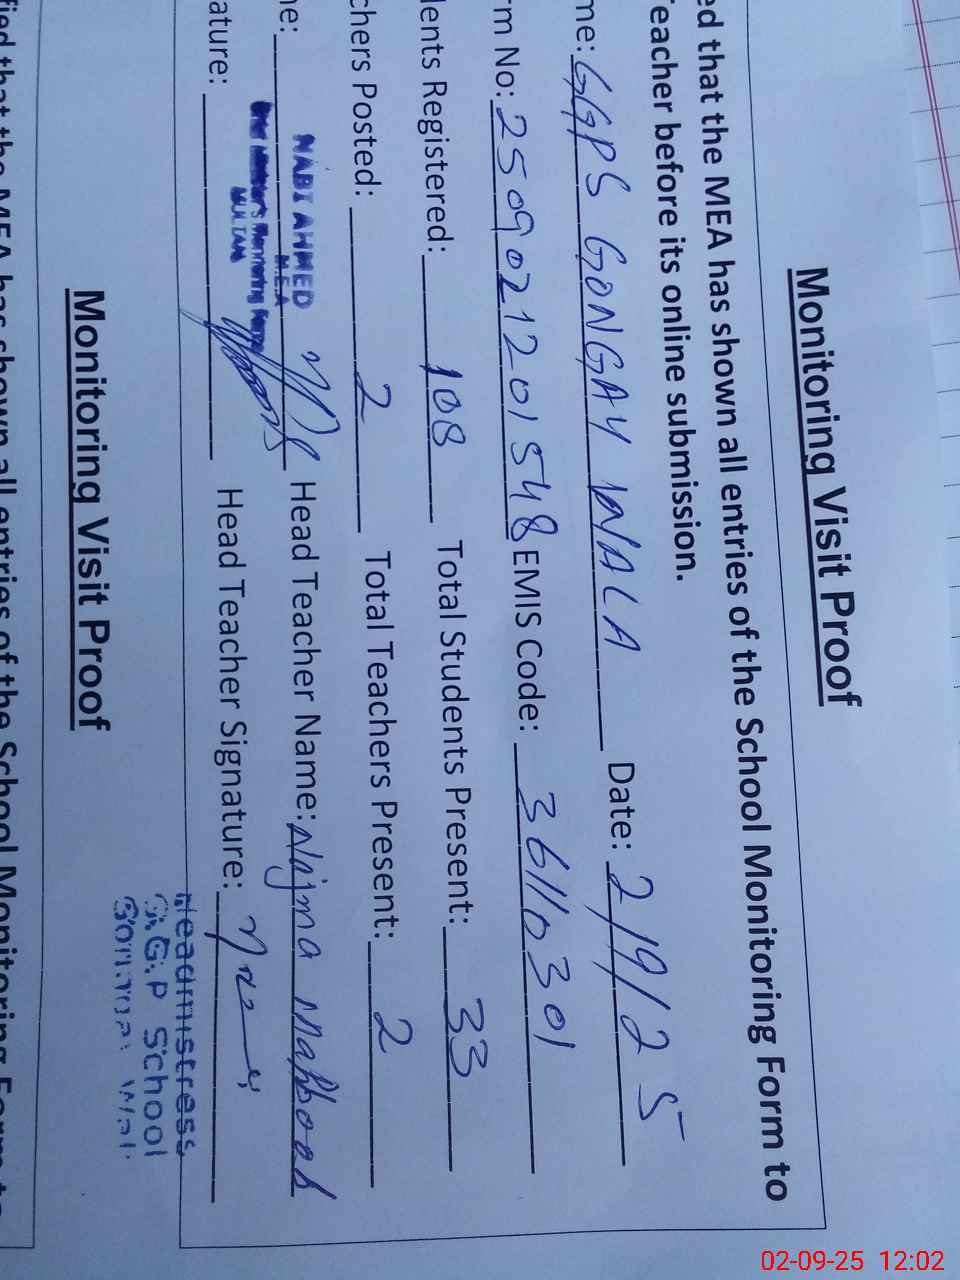 Monitoring Visit Proof
ed that the MEA has shown all entries of the School Monitoring Form to
Teacher before its online submission.
me: GGPS GONGAY WALA Date: 2/9/25
rm No: 2509021201548 EMIS Code: 36110301
dents Registered: 108 Total Students Present: 33
chers Posted: 2 Total Teachers Present: 2
ne: NABI AHMED M.E.A Head Teacher Name: Najma Mahboob
MULTAN
ature: Head Teacher Signature:
Headmistress
G.G.P School
Monitoring Visit Proof
fied that the MEA has shown all entries of the School Monitoring Form to
02-09-25 12:02